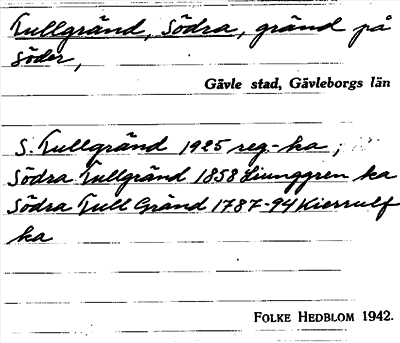 Tullgränd, Södra, gränd på
Söder,
Gävle stad, Gävleborgs län
S. Tullgränd 1925 reg.-ka;
Södra Tullgränd 1858 Liunggren ka
Södra Tull Gränd 1787-94 Kierrulf
ka
FOLKE HEDBLOM 1942.